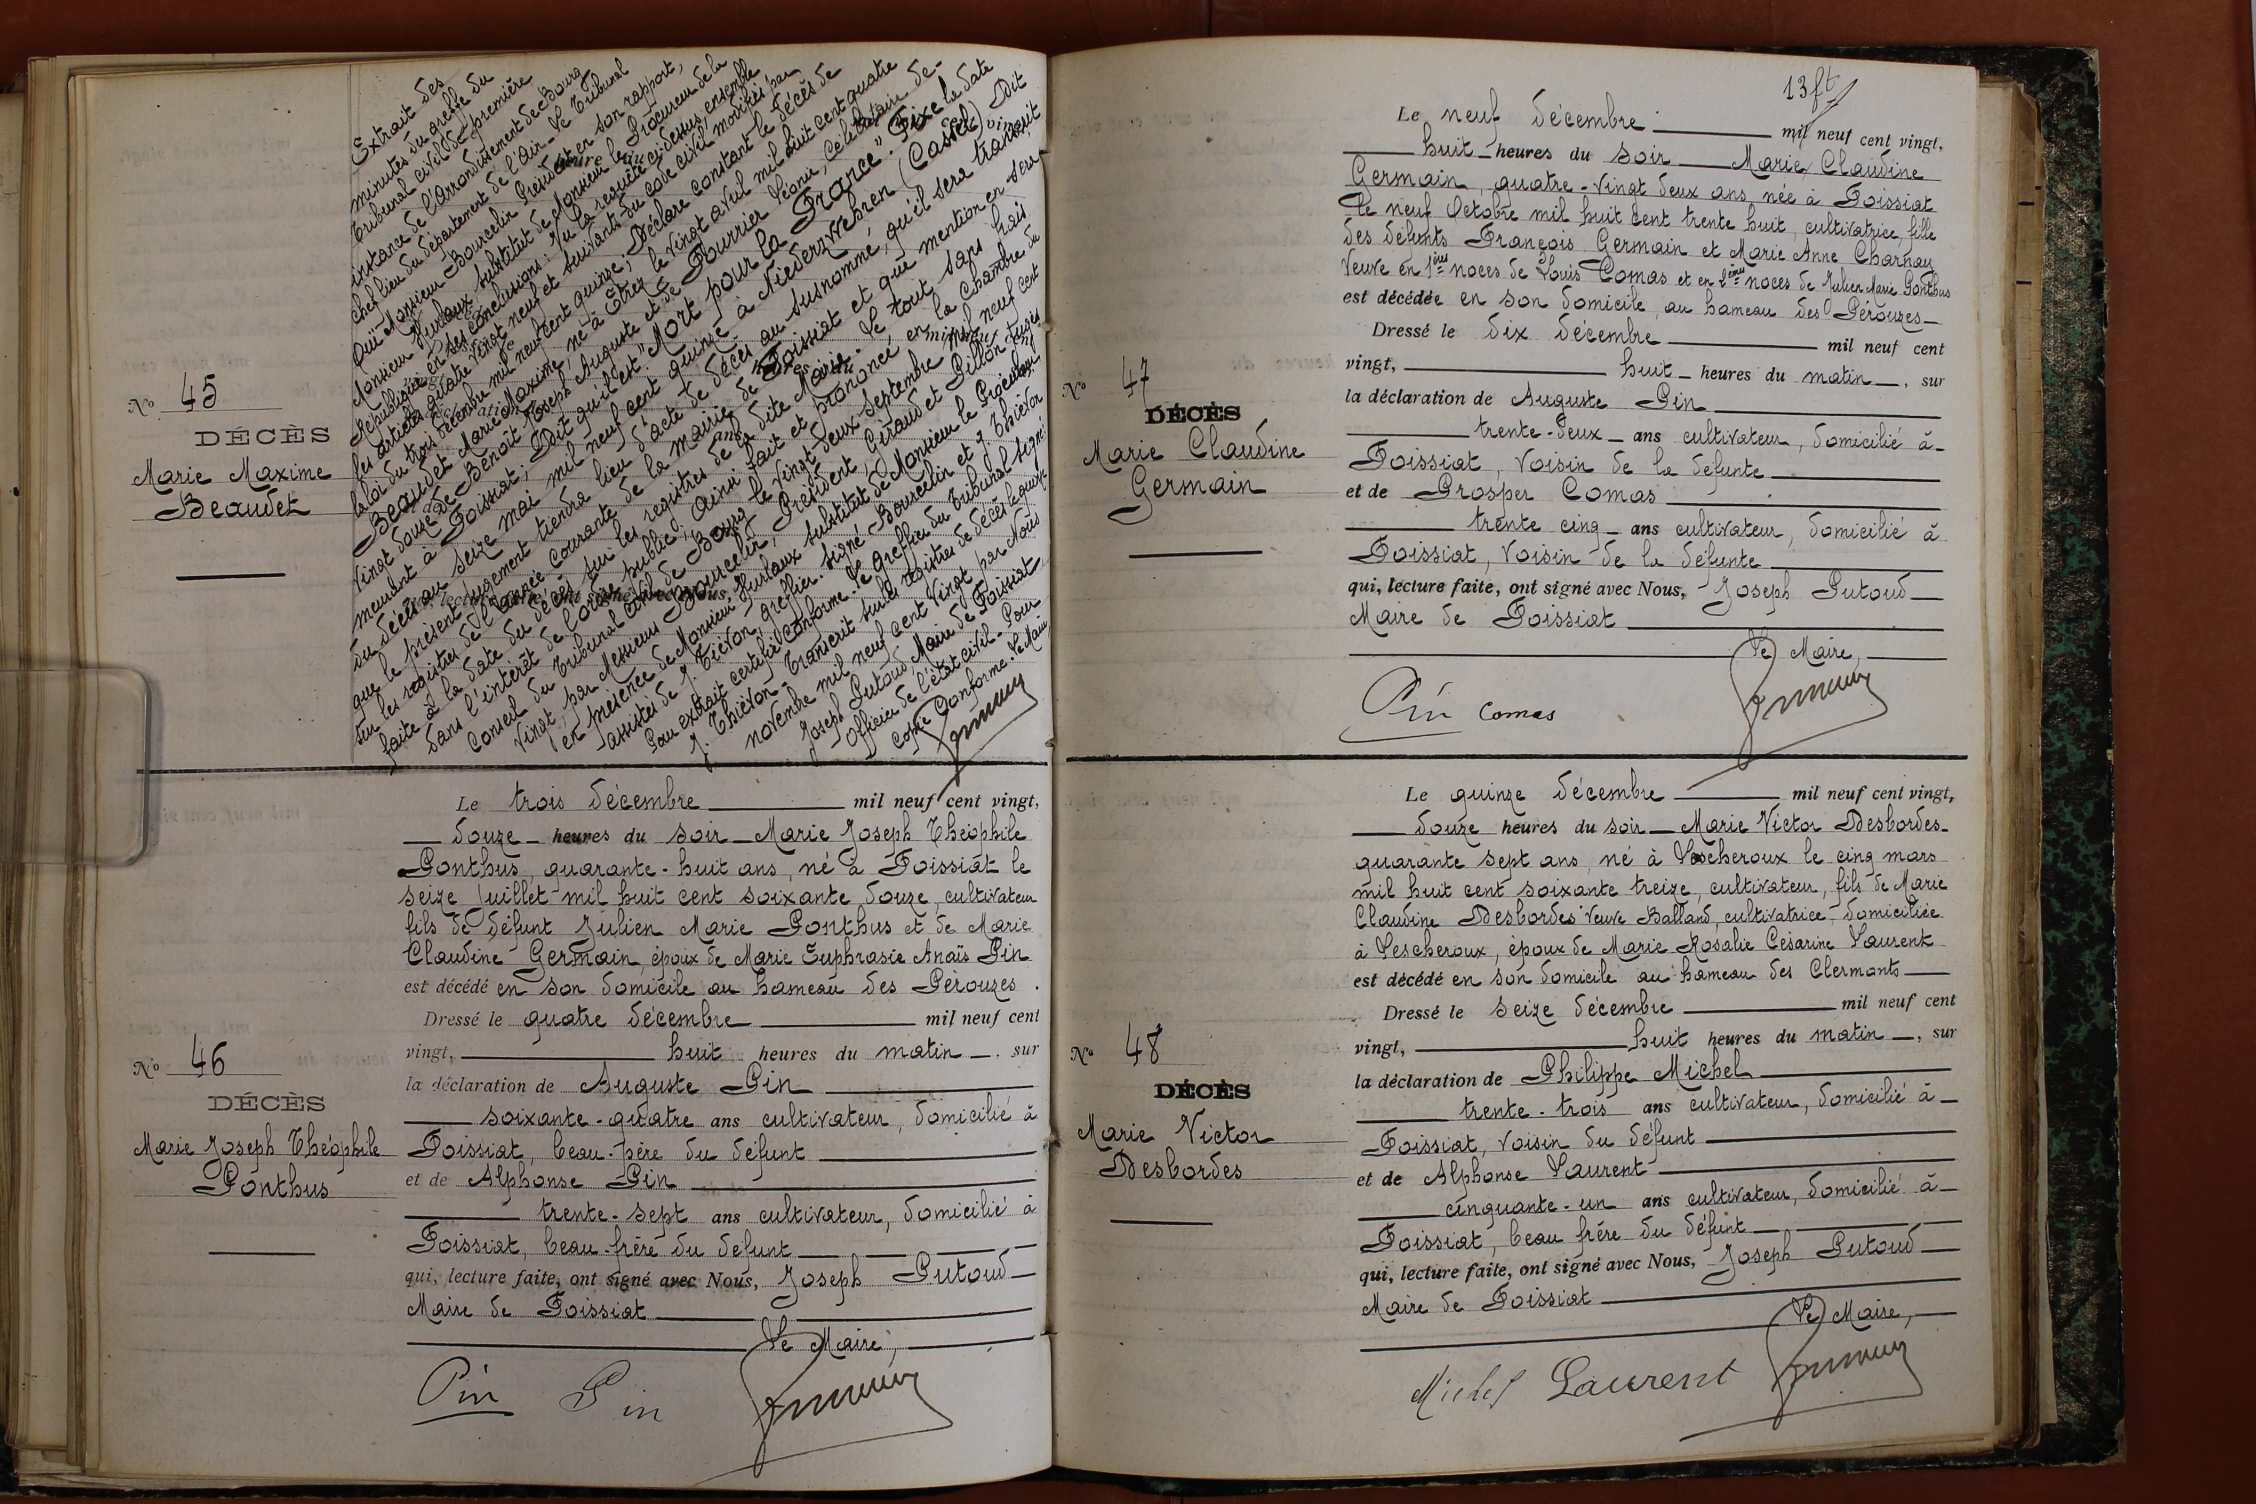 N° 45
DÉCÈS
Marie Maxime
Beaudet
Extrait des
minutes du greffe du
tribunal civil de première
instance de l'arrondissement de Bourg
chef lieu du département de l'Ain - Le Tribunal
Ouï Monsieur Bourcelin Président en son rapport,
Monsieur Hurlaux substitut de Monsieur le Procureur de la
République en ses conclusions: Vu la requête ci-dessus, ensemble
les articles quatre vingt neuf et suivants du code civil, modifiés par
la loi du trois décembre mil neuf cent quinze; Déclare constant le décès de
Beaudet Marie Maxime, né à Etrez le vingt avril mil huit cent quatre
vingt douze de Benoît Joseph Auguste et de Pourrier Léonie, célibataire de-
meurant à Foissiat; Dit qu'il est "Mort pour la France". Fixe la date
du décès au seize mai mil neuf cent quinze à Niederzwehren (Cassel) Dit
que le présent jugement tiendra lieu d'acte de décès au susnommé, qu'il sera transcrit
sur les registres de l'année courante de la mairie de Foissiat et que mention en sera
faite à la date du décès sur les registres de la dite Mairie - Le tout sans frais
dans l'intérêt de l'ordre public. Ainsi fait et prononcé en la Chambre du
Conseil du Tribunal civil de Bourg le vingt deux septembre mil neuf cent
vingt, par Messieurs Bourcelin, Président, Giraud et Pillon juges
en présence de Monsieur Hurlaux substitut de Monsieur le Procureur
assistés de J. Thiévon, greffier. Signé Bourcelin et J. Thiévon
Pour extrait certifié conforme. Le Greffier du Tribunal signé
J. Thiévon - Transcrit sur les registres de décès le quinze
novembre mil neuf cent vingt par Nous
Joseph Putoud, Maire de Foissiat
Officier de l'état civil - Pour
copie conforme. Le Maire
N° 46
DÉCÈS
Marie Joseph Théophile
Ponthus
Le trois décembre mil neuf cent vingt,
douze heures du soir Marie Joseph Théophile
Ponthus, quarante-huit ans, né à Foissiat le
seize Juillet mil huit cent soixante douze, cultivateur
fils de défunt Julien Marie Ponthus et de Marie
Claudine Germain, époux de Marie Euphrasie Anaïs Pin
est décédé en son domicile au hameau des Pérouzes.
Dressé le quatre décembre mil neuf cent
vingt, huit heures du matin, sur
la déclaration de Auguste Pin
soixante-quatre ans cultivateur, domicilié à
Foissiat, beau-père du défunt
et de Alphonse Pin
trente-sept ans cultivateur, domicilié à
Foissiat, beau-frère du défunt
qui, lecture faite, ont signé avec Nous, Joseph Putoud
Maire de Foissiat
Le Maire,
Pin Pin
13 ft
N° 47
DÉCÈS
Marie Claudine
Germain
Le neuf décembre mil neuf cent vingt,
huit heures du soir Marie Claudine
Germain, quatre-vingt deux ans, née à Foissiat
le neuf Octobre mil huit cent trente huit, cultivatrice, fille
des défunts François Germain et Marie Anne Charnay
Veuve en 1ères noces de Louis Comas et en 2èmes noces de Julien Marie Ponthus
est décédée en son domicile, au hameau des Pérouzes
Dressé le dix décembre mil neuf cent
vingt, huit heures du matin, sur
la déclaration de Auguste Pin
trente-deux ans cultivateur, domicilié à
Foissiat, voisin de la défunte
et de Prosper Comas
trente cinq ans cultivateur, domicilié à
Foissiat, voisin de la défunte
qui, lecture faite, ont signé avec Nous, Joseph Putoud
Maire de Foissiat
Le Maire,
Pin Comas
N° 48
DÉCÈS
Marie Victor
Desbordes
Le quinze décembre mil neuf cent vingt,
douze heures du soir Marie Victor Desbordes
quarante sept ans, né à Lescheroux le cinq mars
mil huit cent soixante treize, cultivateur, fils de Marie
Claudine Desbordes veuve Balland, cultivatrice, domiciliée
à Lescheroux, époux de Marie Rosalie Césarine Laurent
est décédé en son domicile au hameau des Clermonts
Dressé le seize décembre mil neuf cent
vingt, huit heures du matin, sur
la déclaration de Philippe Michel
trente-trois ans cultivateur, domicilié à
Foissiat, voisin du défunt
et de Alphonse Laurent
cinquante-un ans cultivateur, domicilié à
Foissiat, beau frère du défunt
qui, lecture faite, ont signé avec Nous, Joseph Putoud
Maire de Foissiat
Le Maire,
Michel Laurent